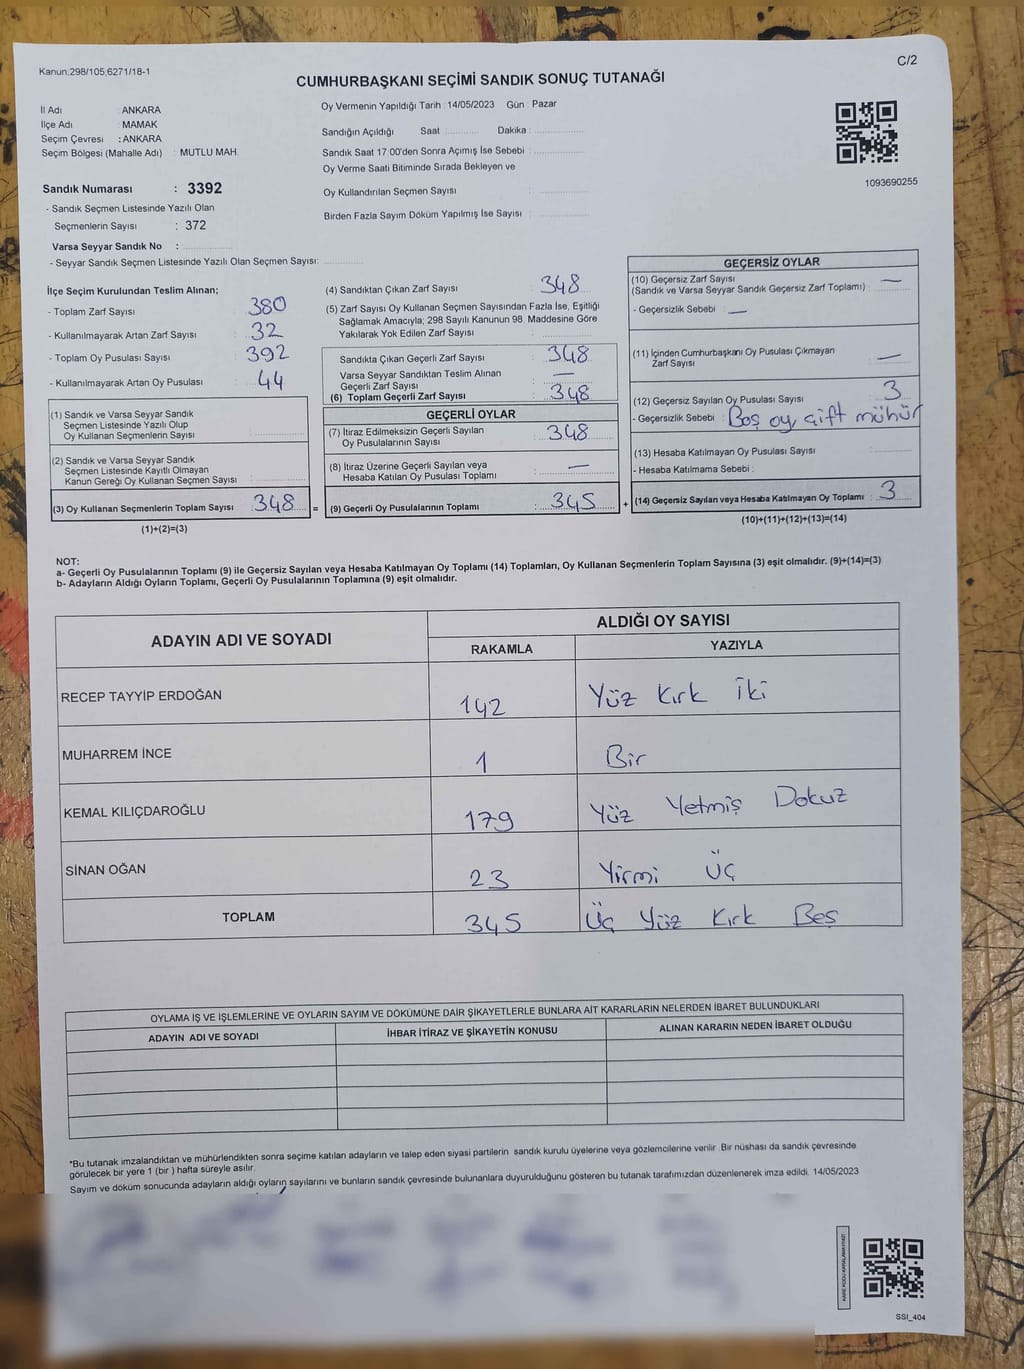 Kanun:298/105,6271/18-1
C/2
CUMHURBAŞKANI SEÇİMİ SANDIK SONUÇ TUTANAĞI
İl Adı : ANKARA
İlçe Adı : MAMAK
Seçim Çevresi : ANKARA
Seçim Bölgesi (Mahalle Adı) : MUTLU MAH.
Sandık Numarası : 3392
- Sandık Seçmen Listesinde Yazılı Olan
Seçmenlerin Sayısı : 372
Varsa Seyyar Sandık No :
- Seyyar Sandık Seçmen Listesinde Yazılı Olan Seçmen Sayısı:
Oy Vermenin Yapıldığı Tarih : 14/05/2023 Gün : Pazar
Sandığın Açıldığı Saat Dakika :
Sandık Saat 17:00'den Sonra Açımış İse Sebebi :
Oy Verme Saati Bitiminde Sırada Bekleyen ve
Oy Kullandırılan Seçmen Sayısı :
Birden Fazla Sayım Döküm Yapılmış İse Sayısı :
1093690255
İlçe Seçim Kurulundan Teslim Alınan;
- Toplam Zarf Sayısı : 380
- Kullanılmayarak Artan Zarf Sayısı : 32
- Toplam Oy Pusulası Sayısı : 392
- Kullanılmayarak Artan Oy Pusulası : 44
(1) Sandık ve Varsa Seyyar Sandık
Seçmen Listesinde Yazılı Olup
Oy Kullanan Seçmenlerin Sayısı :
(2) Sandık ve Varsa Seyyar Sandık
Seçmen Listesinde Kayıtlı Olmayan
Kanun Gereği Oy Kullanan Seçmen Sayısı :
(3) Oy Kullanan Seçmenlerin Toplam Sayısı : 348 =
(1)+(2)=(3)
(4) Sandıktan Çıkan Zarf Sayısı : 348
(5) Zarf Sayısı Oy Kullanan Seçmen Sayısından Fazla İse, Eşitliği
Sağlamak Amacıyla; 298 Sayılı Kanunun 98. Maddesine Göre
Yakılarak Yok Edilen Zarf Sayısı :
Sandıkta Çıkan Geçerli Zarf Sayısı : 348
Varsa Seyyar Sandıktan Teslim Alınan
Geçerli Zarf Sayısı : —
(6) Toplam Geçerli Zarf Sayısı : 348
GEÇERLİ OYLAR
(7) İtiraz Edilmeksizin Geçerli Sayılan
Oy Pusulalarının Sayısı : 348
(8) İtiraz Üzerine Geçerli Sayılan veya
Hesaba Katılan Oy Pusulası Toplamı : —
(9) Geçerli Oy Pusulalarının Toplamı : 345 +
GEÇERSİZ OYLAR
(10) Geçersiz Zarf Sayısı
(Sandık ve Varsa Seyyar Sandık Geçersiz Zarf Toplamı) : —
- Geçersizlik Sebebi : —
(11) İçinden Cumhurbaşkanı Oy Pusulası Çıkmayan
Zarf Sayısı : —
(12) Geçersiz Sayılan Oy Pusulası Sayısı : 3
- Geçersizlik Sebebi : Boş oy, çift mühür
(13) Hesaba Katılmayan Oy Pusulası Sayısı :
- Hesaba Katılmama Sebebi :
(14) Geçersiz Sayılan veya Hesaba Katılmayan Oy Toplamı : 3
(10)+(11)+(12)+(13)=(14)
NOT:
a- Geçerli Oy Pusulalarının Toplamı (9) ile Geçersiz Sayılan veya Hesaba Katılmayan Oy Toplamı (14) Toplamları, Oy Kullanan Seçmenlerin Toplam Sayısına (3) eşit olmalıdır. (9)+(14)=(3)
b- Adayların Aldığı Oyların Toplamı, Geçerli Oy Pusulalarının Toplamına (9) eşit olmalıdır.
ADAYIN ADI VE SOYADI
ALDIĞI OY SAYISI
RAKAMLA YAZIYLA
RECEP TAYYİP ERDOĞAN 142 Yüz Kırk İki
MUHARREM İNCE 1 Bir
KEMAL KILIÇDAROĞLU 179 Yüz Yetmiş Dokuz
SİNAN OĞAN 23 Yirmi Üç
TOPLAM 345 Üç Yüz Kırk Beş
OYLAMA İŞ VE İŞLEMLERİNE VE OYLARIN SAYIM VE DÖKÜMÜNE DAİR ŞİKAYETLERLE BUNLARA AİT KARARLARIN NELERDEN İBARET BULUNDUKLARI
ADAYIN ADI VE SOYADI İHBAR İTİRAZ VE ŞİKAYETİN KONUSU ALINAN KARARIN NEDEN İBARET OLDUĞU
*Bu tutanak imzalandıktan ve mühürlendikten sonra seçime katılan adayların ve talep eden siyasi partilerin sandık kurulu üyelerine veya gözlemcilerine verilir. Bir nüshası da sandık çevresinde
görülecek bir yere 1 (bir ) hafta süreyle asılır.
Sayım ve döküm sonucunda adayların aldığı oyların sayılarını ve bunların sandık çevresinde bulunanlara duyurulduğunu gösteren bu tutanak tarafımızdan düzenlenerek imza edildi. 14/05/2023
SSI_404